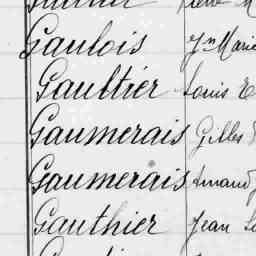 Gaulois Jn Marie
Gaultier Louis E
Gaumerais Gilles
Gaumerais Arnaud
Gauthier Jean